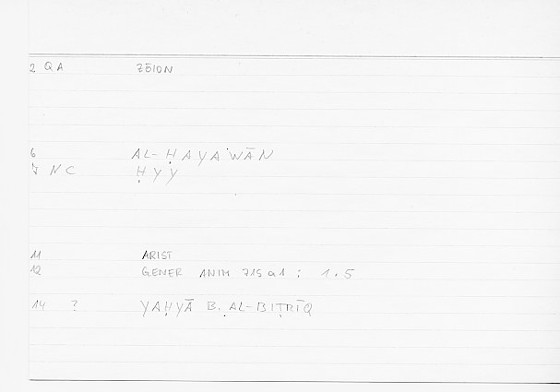 2 QA ZŌION
6 AL-ḤAYAWĀN
7 NC ḤYY
11 ARIST
12 GENER ANIM 715a1 ; 1.5
14 ? YAḤYĀ B. AL-BIṬRĪQ